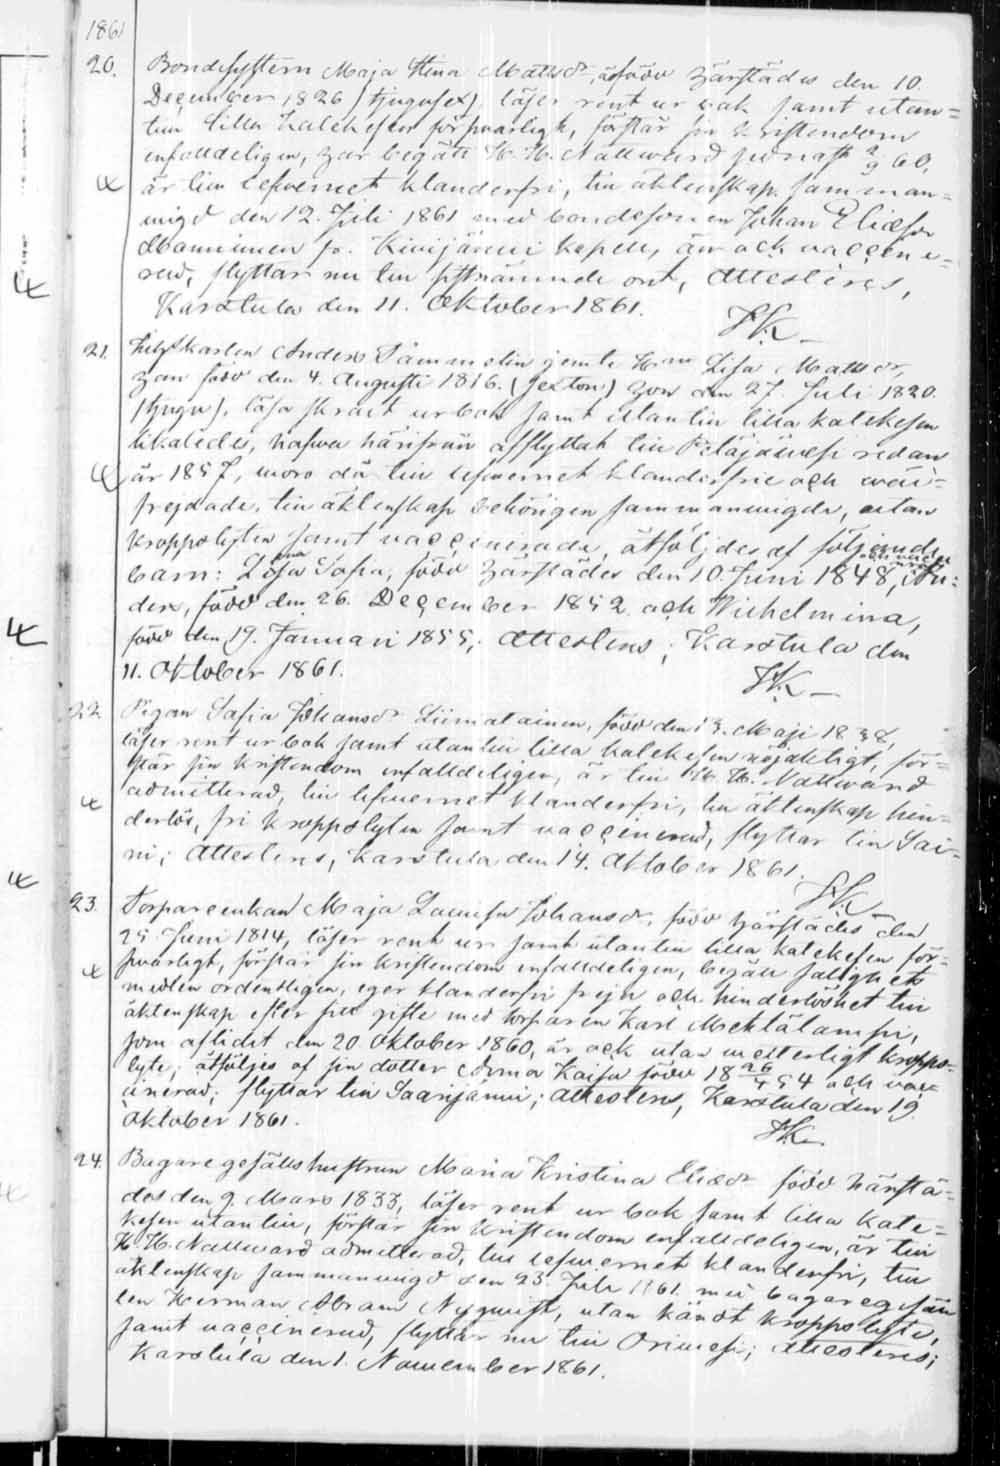 1861
20. Bondehustrun Maja Stina Mattsdr, är född härstädes den 10.
December 1826 (tjugusex), läser rent ur bok samt utan=
till lilla katekesen försvarligt, förstår sin kristendom
enfalldeligen, har begått H. H. Nattward sednast 2/9 60,
är till lefwernet klanderfri, till äktenskap samman=
wigd den 12. Juli 1861 med bondesonen Johan Eliasson
Manninen fr. Kiwijärwi kapell, är ock vaccine=
rad, flyttar nu till sistnämnde ort, attesteras,
Karstula den 11. Oktober 1861.
HK
21. Anders Sammelin jemte Hru Lisa Mattsdr,
han född den 4. Augusti 1816. (sexton) hon den 27. Juli 1820.
(tjugu), läsa swait ur bok samt utantill lilla katekesen
likaledes, hafwa härifrån afflyttat till Petäjäwesi redan
år 1857, woro då till lefwernet klanderfrie och wäl=
frejdade, till äktenskap behörigen sammanwigde, utan
kroppslyten samt vaccinerade, åtföljdes af följande
barn: Lisa Sofia, född härstädes den 10. Juni 1848, An=
ders, född den 26. December 1852 och Wilhelmina,
född den 19. Januari 1855; attesteras; Karstula den
11. Oktober 1861.
HK
22. Pigan Sofia Johansdr Liimatainen, född den 13. Maji 1838,
läser rent ur bok samt utantill lilla katekesen nöjaktigt, för=
står sin kristendom enfalldeligen, är till H. H. Nattward
admitterad, till lefwernet klanderfri, till äktenskap hin=
derlös, fri kroppslyten samt vaccinerad, flyttar till Sai=
ni; attesteras, Karstula den 14. Oktober 1861.
HK
23. Torpareenkan Maja Lowisa Johansdr, född härstädes den
25. Juni 1814, läser rent ur samt utantill lilla katekesen för=
swarligt, förstår sin kristendom enfalldeligen, begått salighets
medlen ordentligen, eger klanderfri frejd och hinderlöshet till
äktenskap efter sitt gifte med torparen Karl Mehtälampi,
som aflidit den 20 Oktober 1860, är ock utan wisterligt kropps=
lyte; åtföljes af sin dotter Anna Kaisa född 18 26/4 54 och vac=
cinerad; flyttar till Saarijärwi; attesteras, Karstula den 19.
Oktober 1861.
HK
24. Bagaregesällshustrun Maria Kristina Eliasdr född härstä=
des den 9. Mars 1833, läser rent ur bok samt lilla kate=
kesen utantill, förstår sin kristendom enfalldeligen, är till
H. H. Nattward admitterad, till lefwernet klanderfri, till
äktenskap sammanwigd den 23. Juli 1861 med bagaregesäll
len Herman Abram Nyqwist, utan kändt kroppslyte,
samt vaccinerad, flyttar nu till Oriwesi; attesteras;
Karstula den 1. November 1861.